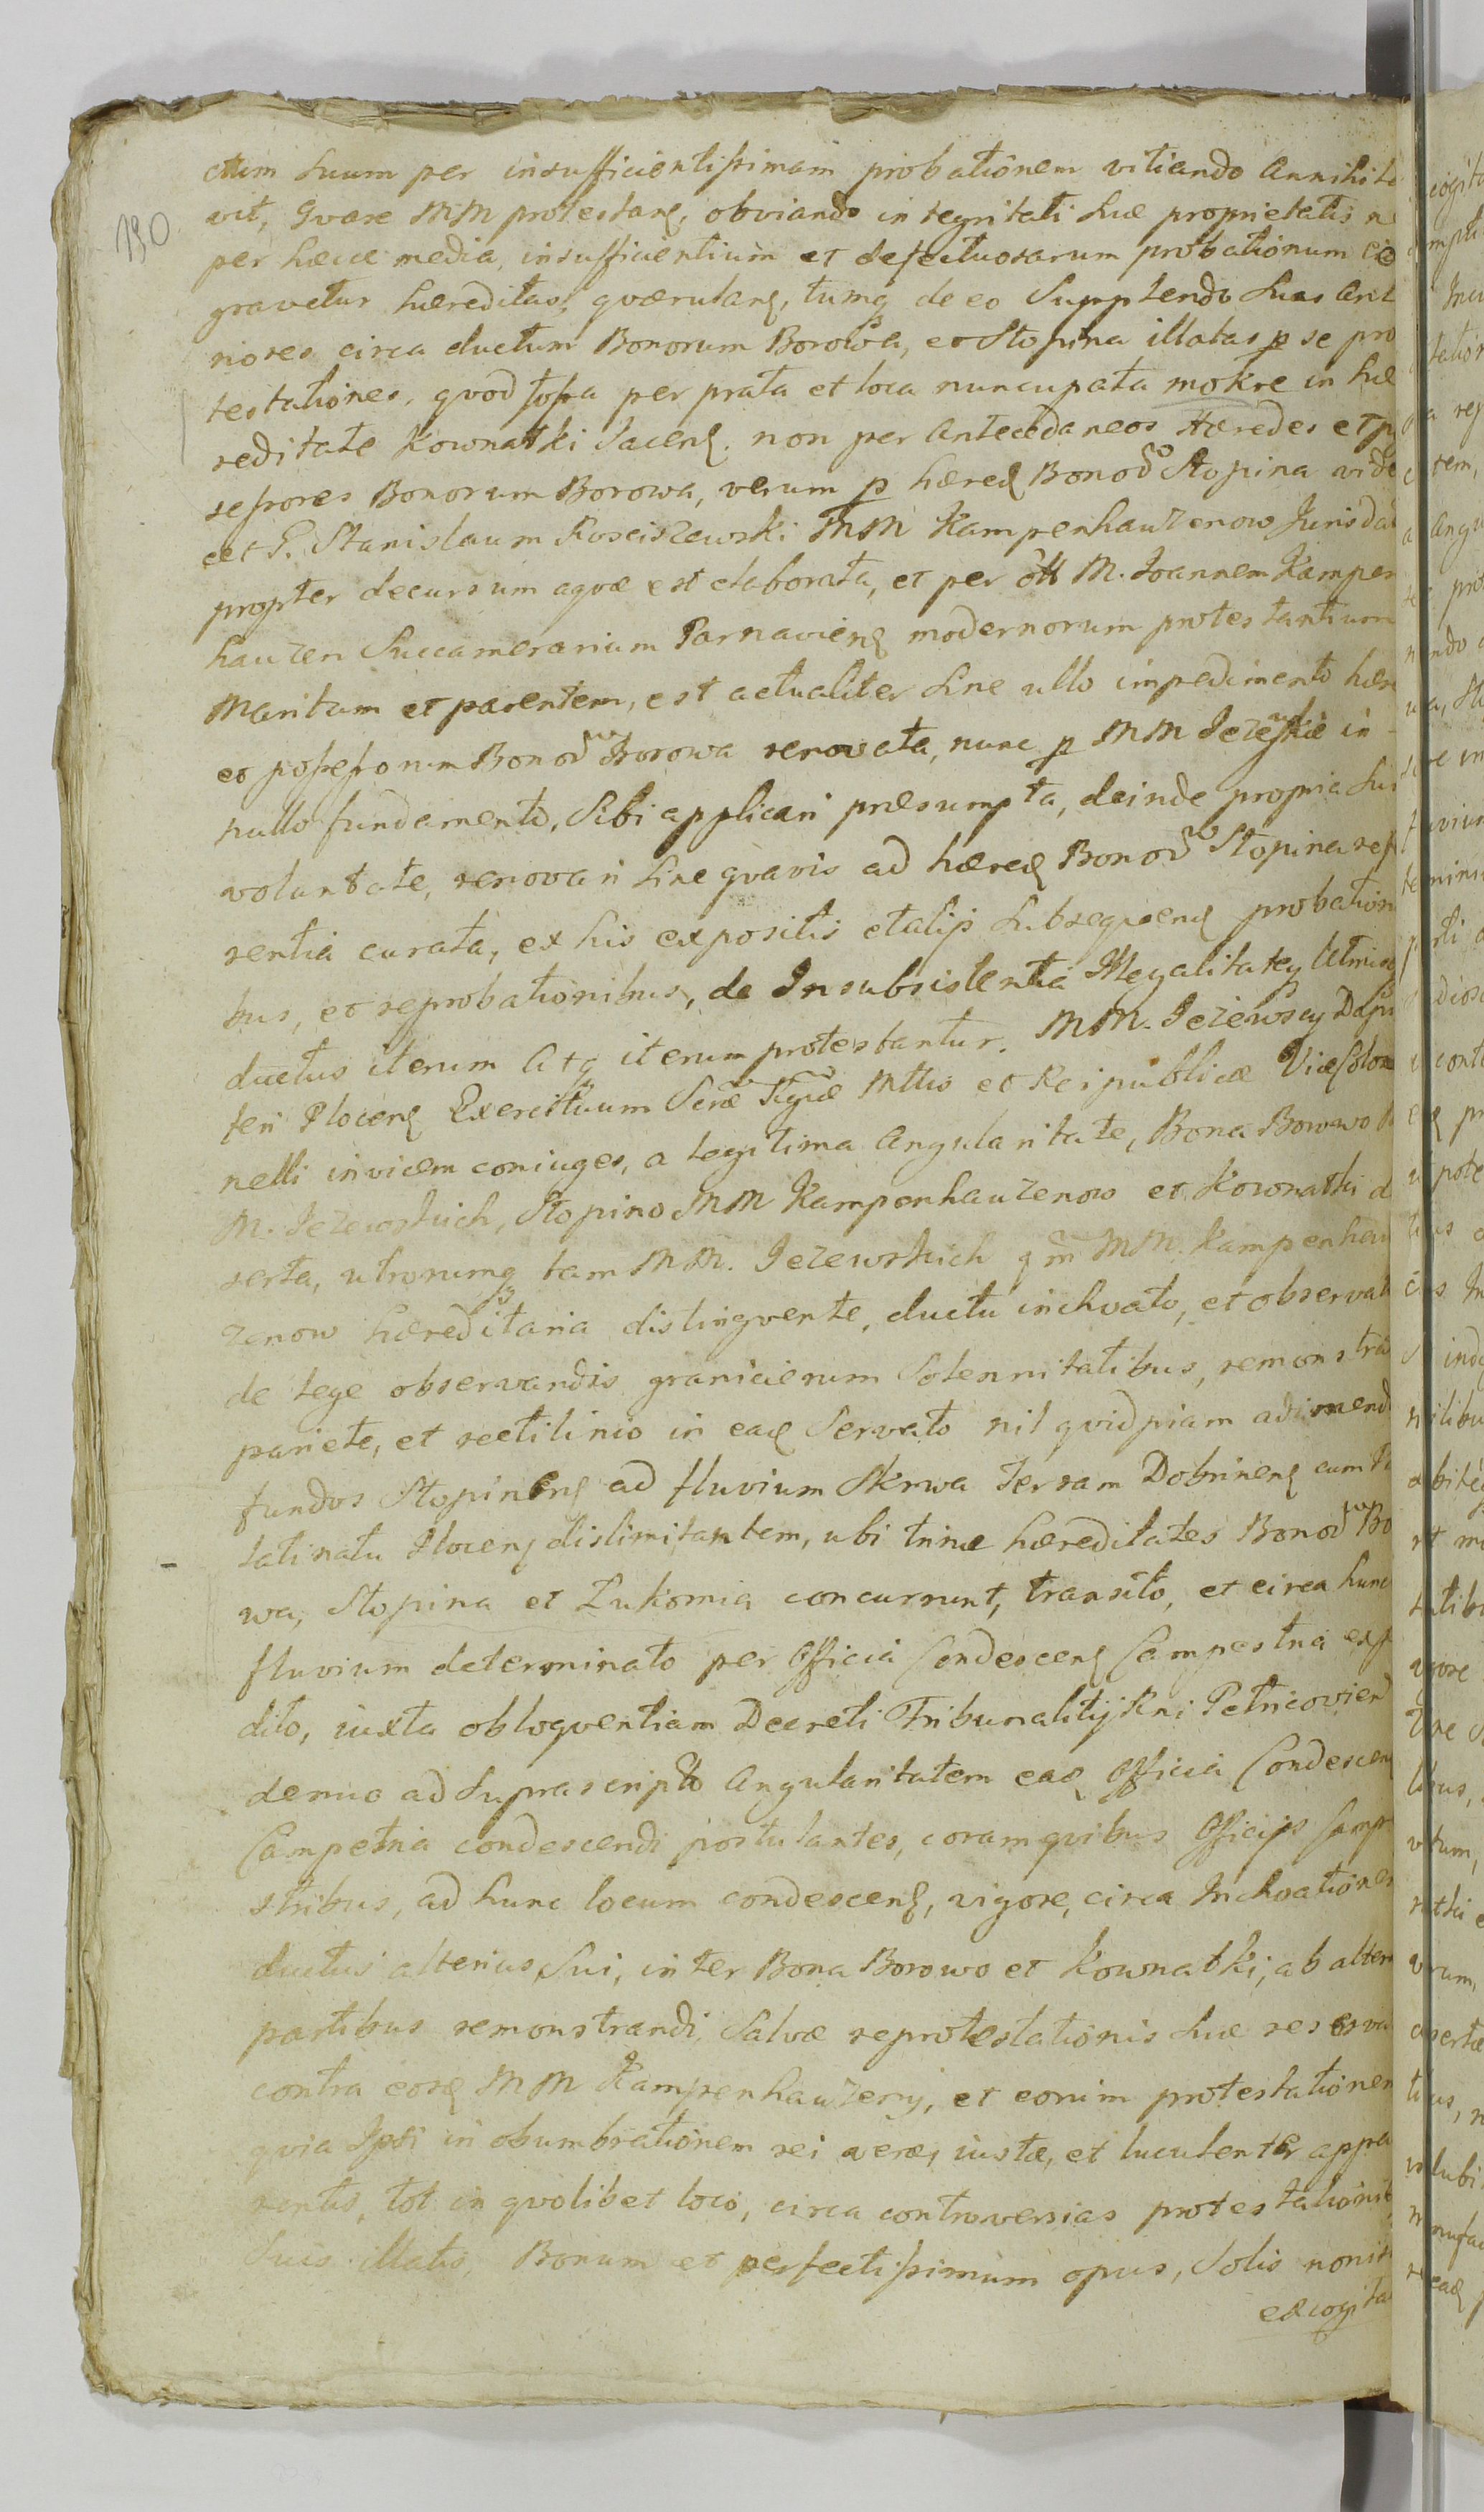 190
ctum Suum per insufficientissimam probationem vitiando Annihila
vit, Qvare MM protestanȩ, obviando integritati Suæ proprietatis n
per hæcce media, insufficientium et defectuosarum probationum
gravetur hæreditas, qværulanȩ, tumq de eo Sumptendo Suas Ant
riores circa ductum Bonorum Borowa, et Stopina illatas p se pro
testationes, qvod fossa per prata et loca nuncupata mokre in hæ
reditate Kownatki Jacenȩ. non per Antecedaneos Hæredes et p
sessores Bonorum Borowa, verum p hæreȩ Bonoȓ Stopina vide
cet G. Stanislaum Kosciszewski MM Kampenhauzenow Jurisdat
propter decursum aqvæ est elaborata, et per olt M. Joannem Kampen
hauzen Succamerarium Parnavienȩ modernorum protestantium
Maritum et parentem, est actualiter Sine ullo impedimento hære
et possessorum Bonoȓ Borowa renovata, nunc p MM Jezewskie in
nullo fundamento, Sibi applicari præsumpta, deinde propria Su
voluntate, renovari Sine qvavis ad hæreȩ Bonoȓ Stopina refe
rentia curata, ex his expositis et alijs Subseqvenȩ probation
bus, et reprobationibus, de Insubsistentia Illegalitateq
ductus iterum Atq iterum protestantur. MM. Jezewscy Dapi
feri Plocenȩ Exercituum Seræ Rgiæ Mttis et Reipublicæ Vice Colo
nelli invicem coniuges, a legitima Angularitate, Bona Borowo
M. Jezewskich, Stopino MM Kampenhauzenow et Kownatki d
serta, utrorumq tam MM. Jezewskich qm MM. Kampenhau
zenow hæreditaria distingvente, ductu inchoato, et observat
de lege observandis granicierum Solennitatibus, remonstra
pariete, et rectilinio in eaȩ Servato nil qvidpiam adimend
fundos Stopinenȩ ad fluvium Skrwa Terram Dobrinenȩ cum P
latinatu Plocenȩ dislimitantem, ubi trinæ hæreditates Bonoȓ Bo
wa, Stopina et Lukomia concurrunt, transito, et circa hunc
fluvium determinato per Officia Condescenȩ Campestria exp
dito, iuxta obloqventiam Decreti Tribunalitij Rni Petricovien
denuo ad Suprascriptã Angularitatem eaȩ Officia Condescen
Campetria condescendi postulantes, coram qvibus Officijs Campe
stribus, ad hunc locum condescenȩ, vigore, circa Inchoationem
ductus alterius Sui, inter Bona Borowo et Kownatki, ab altera
partibus remonstrandi, Salvæ reprotestationis Suæ reserva
contra eosȩ MM Kampenhauzeny, et eorum protestationem
qvia Ipsi in obumbrationem rei veræ, iustæ, et luculenter appa
rentis, tot in qvolibet loco, circa controversias protestationib
Suis illatis, Bonum et perfectissimum opus, Solis nonis
excogita